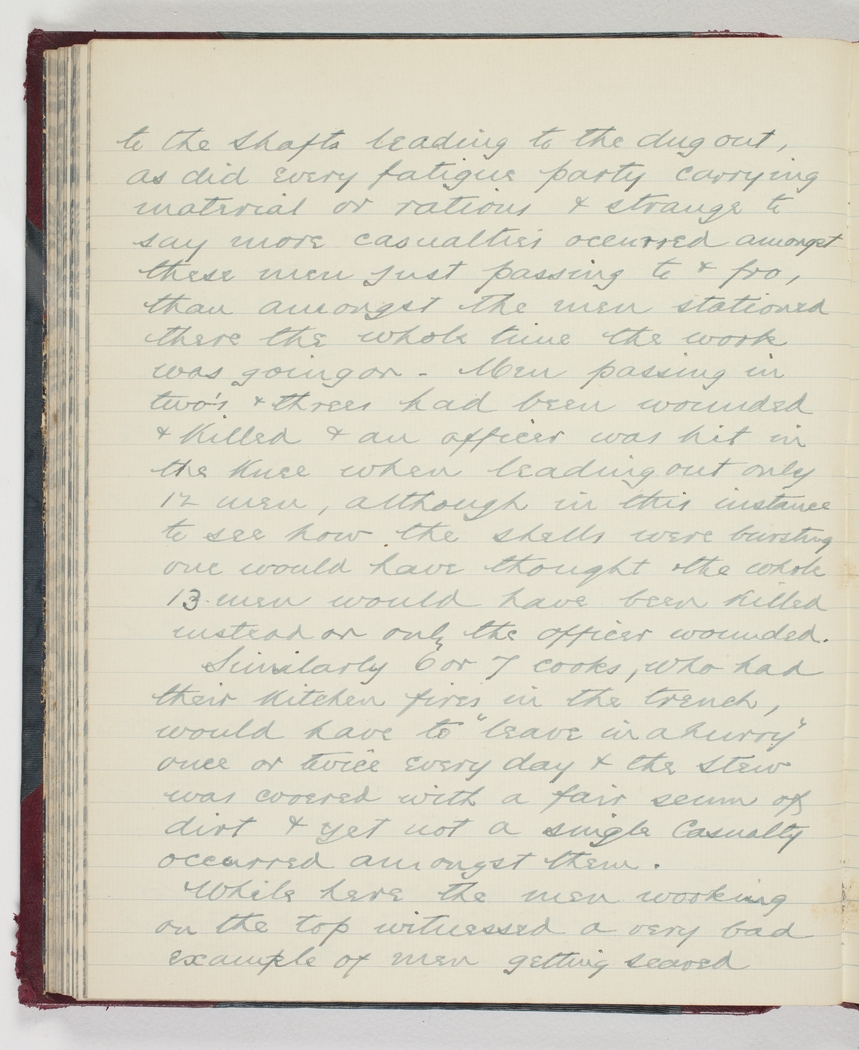 to the shafts leading to the dug out,
as did every fatigue party carrying
material or rations & strange to
say more casualties occurred amongst
these men just passing to & fro,
than amongst the men stationed
there the whole time the work
was going on - Men passing in
two's & threes had been wounded
& killed & an officer was hit in
the knee when leading out only
12 men, although in this instance
to see how the shells were bursting
one would have thought the whole
13 men would have been killed
instead or only the officer wounded.
Similarly 6 or 7 cooks, who had
their kitchen fires in the trench,
would have to "leave in a hurry"
once or twice every day & the stew
was covered with a fair scum of
dirt & yet not a single casualty
occurred amongst them.
While here the men working
on the top witnessed a very bad
example of men getting scared